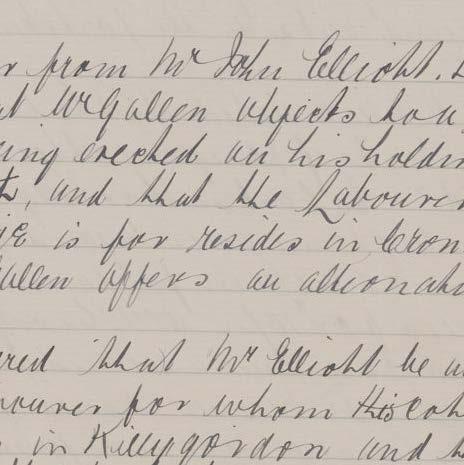 from Mr John Elliott.
McGallen objects to a
erected on his holdin
and that the Labourer
is for resides in Cron
Gallen offers an alternati
ered that Mr Elliott be
bourer for whom this cot
in Killygordon and